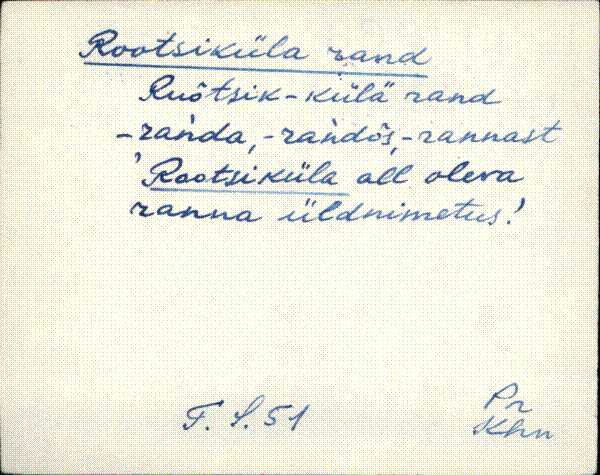 Rootsiküla rand
Ruõtsik-külä rand
-rańda, -rańdõs, -rannast
'Rootsiküla all oleva
ranna üldnimetus!
F. S. 51
Pr
Khn